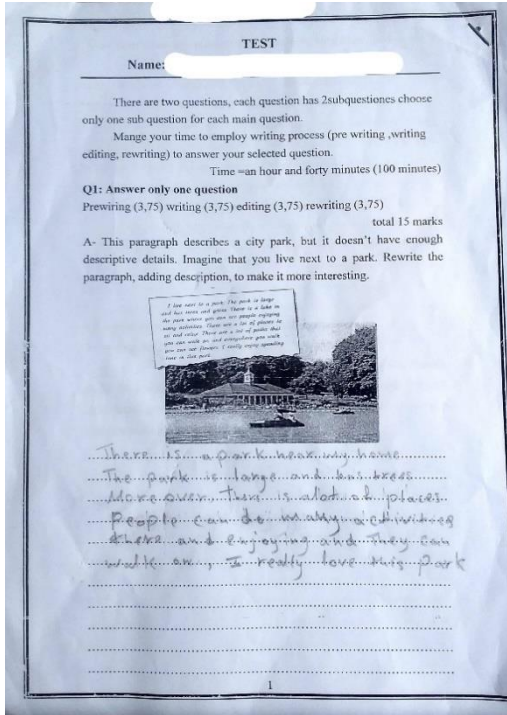 TEST
Name:
There are two questions, each question has 2subquestiones choose
only one sub question for each main question.
Mange your time to employ writing process (pre writing ,writing
editing, rewriting) to answer your selected question.
Time =an hour and forty minutes (100 minutes)
Q1: Answer only one question
Prewiring (3,75) writing (3,75) editing (3,75) rewriting (3,75)
total 15 marks
A- This paragraph describes a city park, but it doesn't have enough
descriptive details. Imagine that you live next to a park. Rewrite the
paragraph, adding description, to make it more interesting.
I live next to a park. The park is large
and has trees and grass. There is a lake in
the park where you can see people enjoying
many activities. There are a lot of places to
sit and relax. There are a lot of paths that
you can walk on and everywhere you walk
you can see flowers. I really enjoy spending
time in this park.
There is a park near my home
The park is large and has tress
More over, there is alot of places
People can do many activities
there and enjoying and They can
walk on, I really love this Park
1